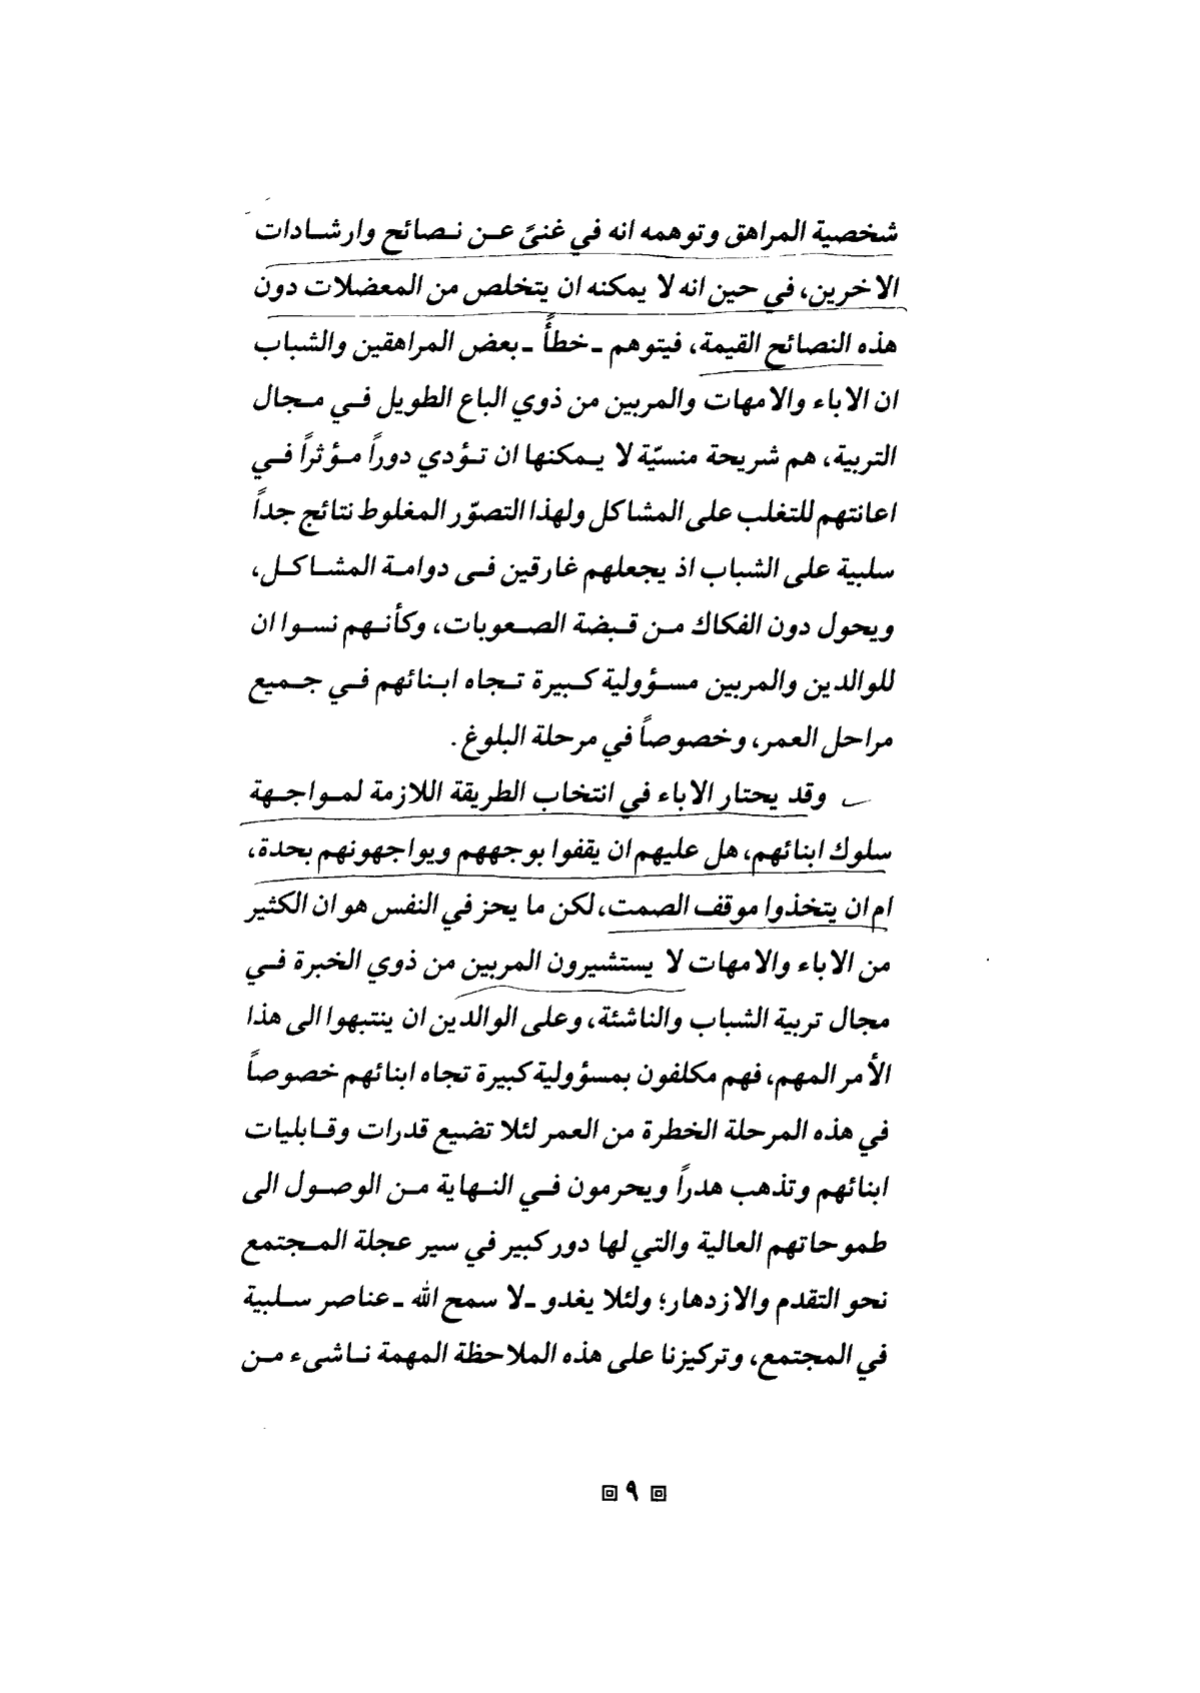 شخصية المراهق وتوهمه انه في غنىً عن نصائح وارشادات
الاخرين، في حين انه لا يمكنه ان يتخلص من المعضلات دون
هذه النصائح القيمة، فيتوهم ـ خطأً ـ بعض المراهقين والشباب
ان الاباء والامهات والمربين من ذوي الباع الطويل في مجال
التربية، هم شريحة منسيّة لا يمكنها ان تؤدي دوراً مؤثراً في
اعانتهم للتغلب على المشاكل ولهذا التصوّر المغلوط نتائج جداً
سلبية على الشباب اذ يجعلهم غارقين فى دوامة المشاكل،
ويحول دون الفكاك من قبضة الصعوبات، وكأنهم نسوا ان
للوالدين والمربين مسؤولية كبيرة تجاه ابنائهم في جميع
مراحل العمر، وخصوصاً في مرحلة البلوغ.
وقد يحتار الاباء في انتخاب الطريقة اللازمة لمواجهة
سلوك ابنائهم، هل عليهم ان يقفوا بوجههم ويواجهونهم بحدة،
ام ان يتخذوا موقف الصمت، لكن ما يحز في النفس هو ان الكثير
من الاباء والامهات لا يستشيرون المربين من ذوي الخبرة في
مجال تربية الشباب والناشئة، وعلى الوالدين ان ينتبهوا الى هذا
الأمر المهم، فهم مكلفون بمسؤولية كبيرة تجاه ابنائهم خصوصاً
في هذه المرحلة الخطرة من العمر لئلا تضيع قدرات وقابليات
ابنائهم وتذهب هدراً ويحرمون في النهاية من الوصول الى
طموحاتهم العالية والتي لها دور كبير في سير عجلة المجتمع
نحو التقدم والازدهار؛ ولئلا يغدو ـ لا سمح الله ـ عناصر سلبية
في المجتمع، وتركيزنا على هذه الملاحظة المهمة ناشىء من
٩